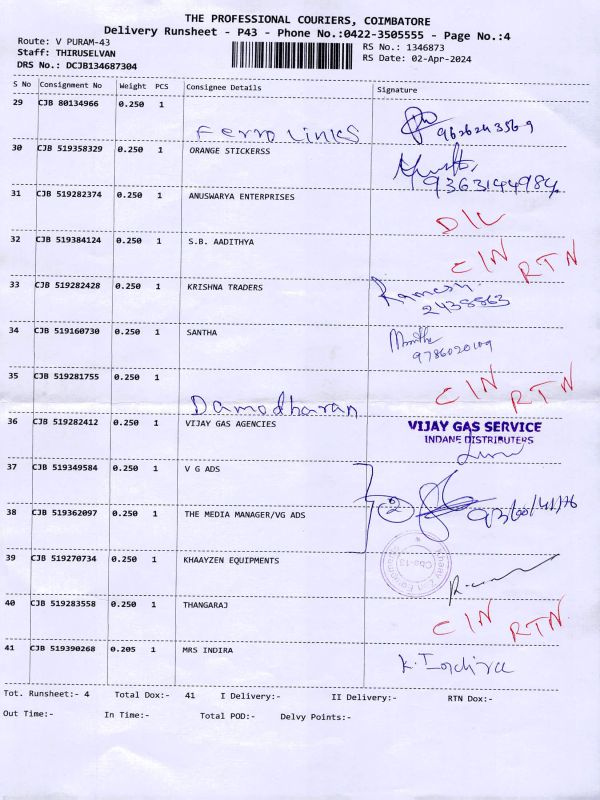 THE PROFESSIONAL COURIERS, COIMBATORE
Delivery Runsheet - P43 - Phone No.:0422-3505555 - Page No.:4
Route: V PURAM-43
RS No.: 1346873
Staff: THIRUSELVAN
RS Date: 02-Apr-2024
DRS No.: DCJB134687304
S No Consignment No Weight PCS Consignee Details Signature
29 CJB 80134966 0.250 1
Ferro Links
30 CJB 519358329 0.250 1 ORANGE STICKERSS
9363144984
31 CJB 519282374 0.250 1 ANUSWARYA ENTERPRISES
D/L
32 CJB 519384124 0.250 1 S.B. AADITHYA
C/N RTN
33 CJB 519282428 0.250 1 KRISHNA TRADERS Ramesh
2438863
34 CJB 519160730 0.250 1 SANTHA
35 CJB 519281755 0.250 1
Damodharan C/N RTN
36 CJB 519282412 0.250 1 VIJAY GAS AGENCIES VIJAY GAS SERVICE
INDANE DISTRIBUTERS
37 CJB 519349584 0.250 1 V G ADS
2
38 CJB 519362097 0.250 1 THE MEDIA MANAGER/VG ADS
39 CJB 519270734 0.250 1 KHAAYZEN EQUIPMENTS
40 CJB 519283558 0.250 1 THANGARAJ
C/N RTN
41 CJB 519390268 0.205 1 MRS INDIRA
K. Indira
Tot. Runsheet:- 4 Total Dox:- 41 I Delivery:- II Delivery:- RTN Dox:-
Out Time:- In Time:- Total POD:- Delvy Points:-